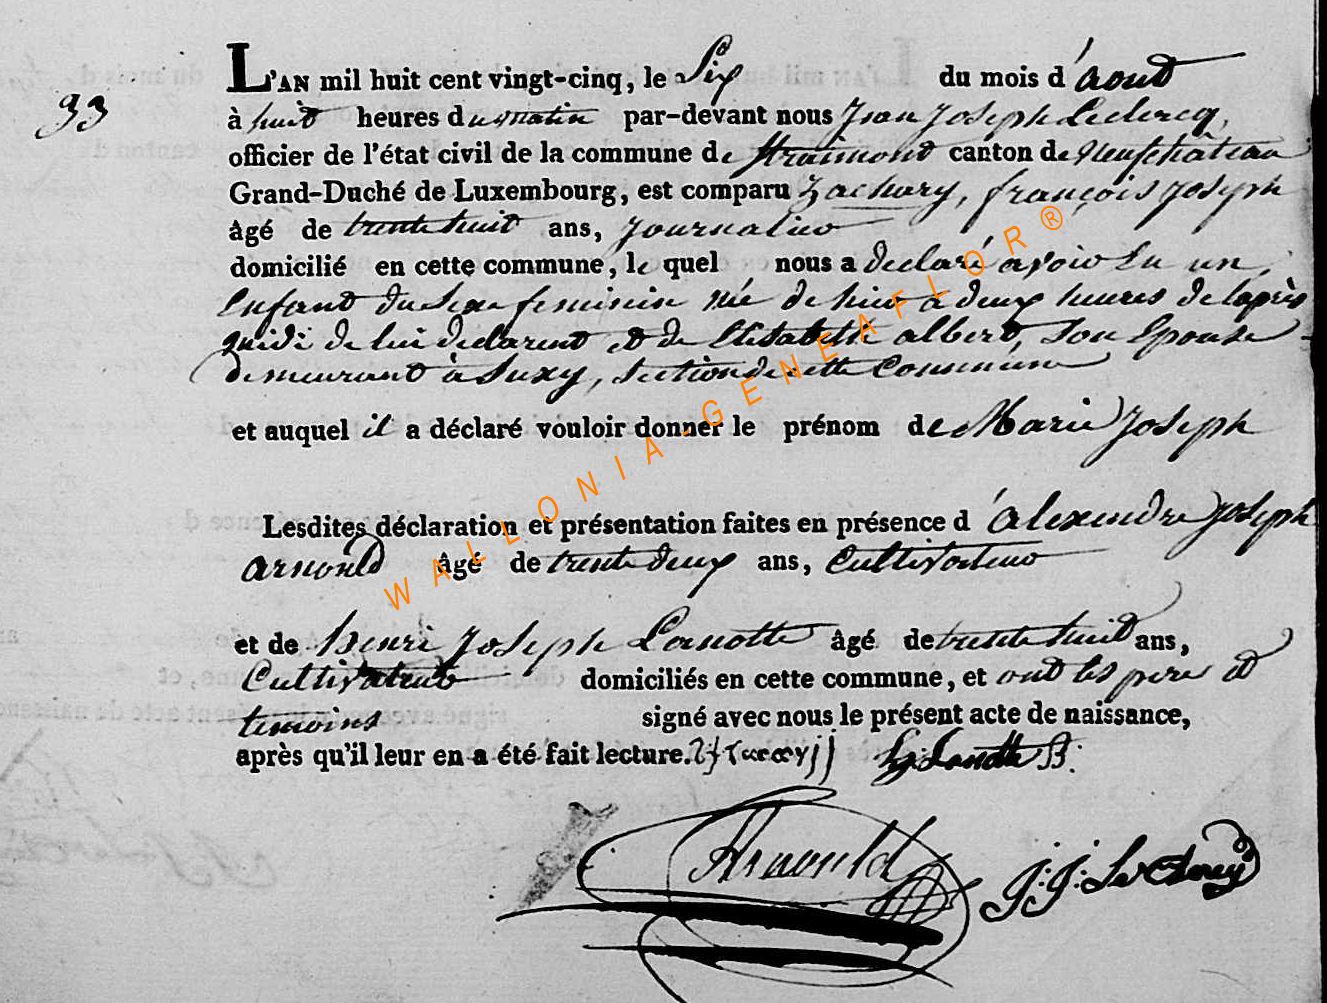 L'AN mil huit cent vingt-cinq, le Six du mois d'aout
33
à huit heures du matin par-devant nous Jean Joseph Leclercq,
officier de l'état civil de la commune de Straimont canton de Neufchâteau
Grand-Duché de Luxembourg, est comparu Zachary, françois Joseph
âgé de trente huit ans, Journalier
domicilié en cette commune, le quel nous a declaré avoir Eu un
Enfant du Sexe feminin née de hier à deux heures de laprès
midi de lui declarent et de Elisabeth albert, Son Epouse
demeurant à Suxy, Section de cette Commune
et auquel il a déclaré vouloir donner le prénom de Marie Joseph
Lesdites déclaration et présentation faites en présence d'alexendre Joseph
arnould âgé de trente deux ans, Cultivateur
et de henri Joseph Lanotte âgé de trente huit ans,
Cultivateur domiciliés en cette commune, et ont les pere et
temoins signé avec nous le présent acte de naissance,
après qu'il leur en a été fait lecture. hj: Lanotte
Arnould J: J: Le Clercq
WALLONIA-GENEAFLOR®